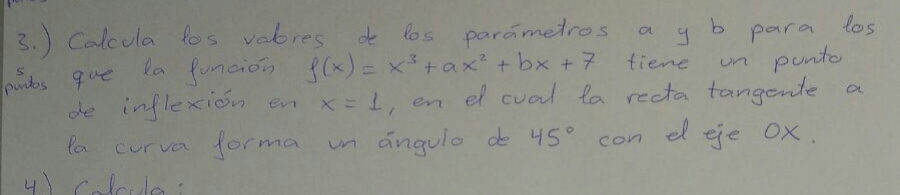 3.) Calcula los valores de los parámetros a y b para los
5 puntos que la función f(x) = x³ + ax² + bx + 7 tiene un punto
de inflexión en x = 1, en el cual la recta tangente a
la curva forma un ángulo de 45° con el eje OX.
4) Calcula: